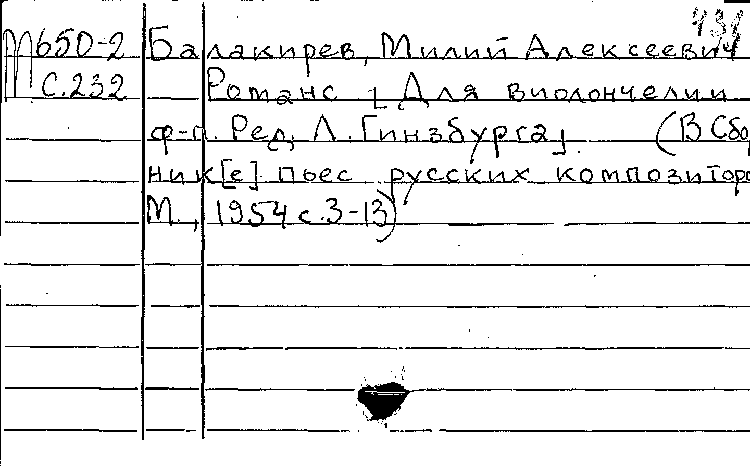 М650-2 Балакирев, Милий Алексеевич
с.232 Романс [Для виолончели и
ф-п. Ред. Л. Гинзбурга]. (В Сбор
ник[е] пьес русских композиторо
М., 1954 с.3-13)